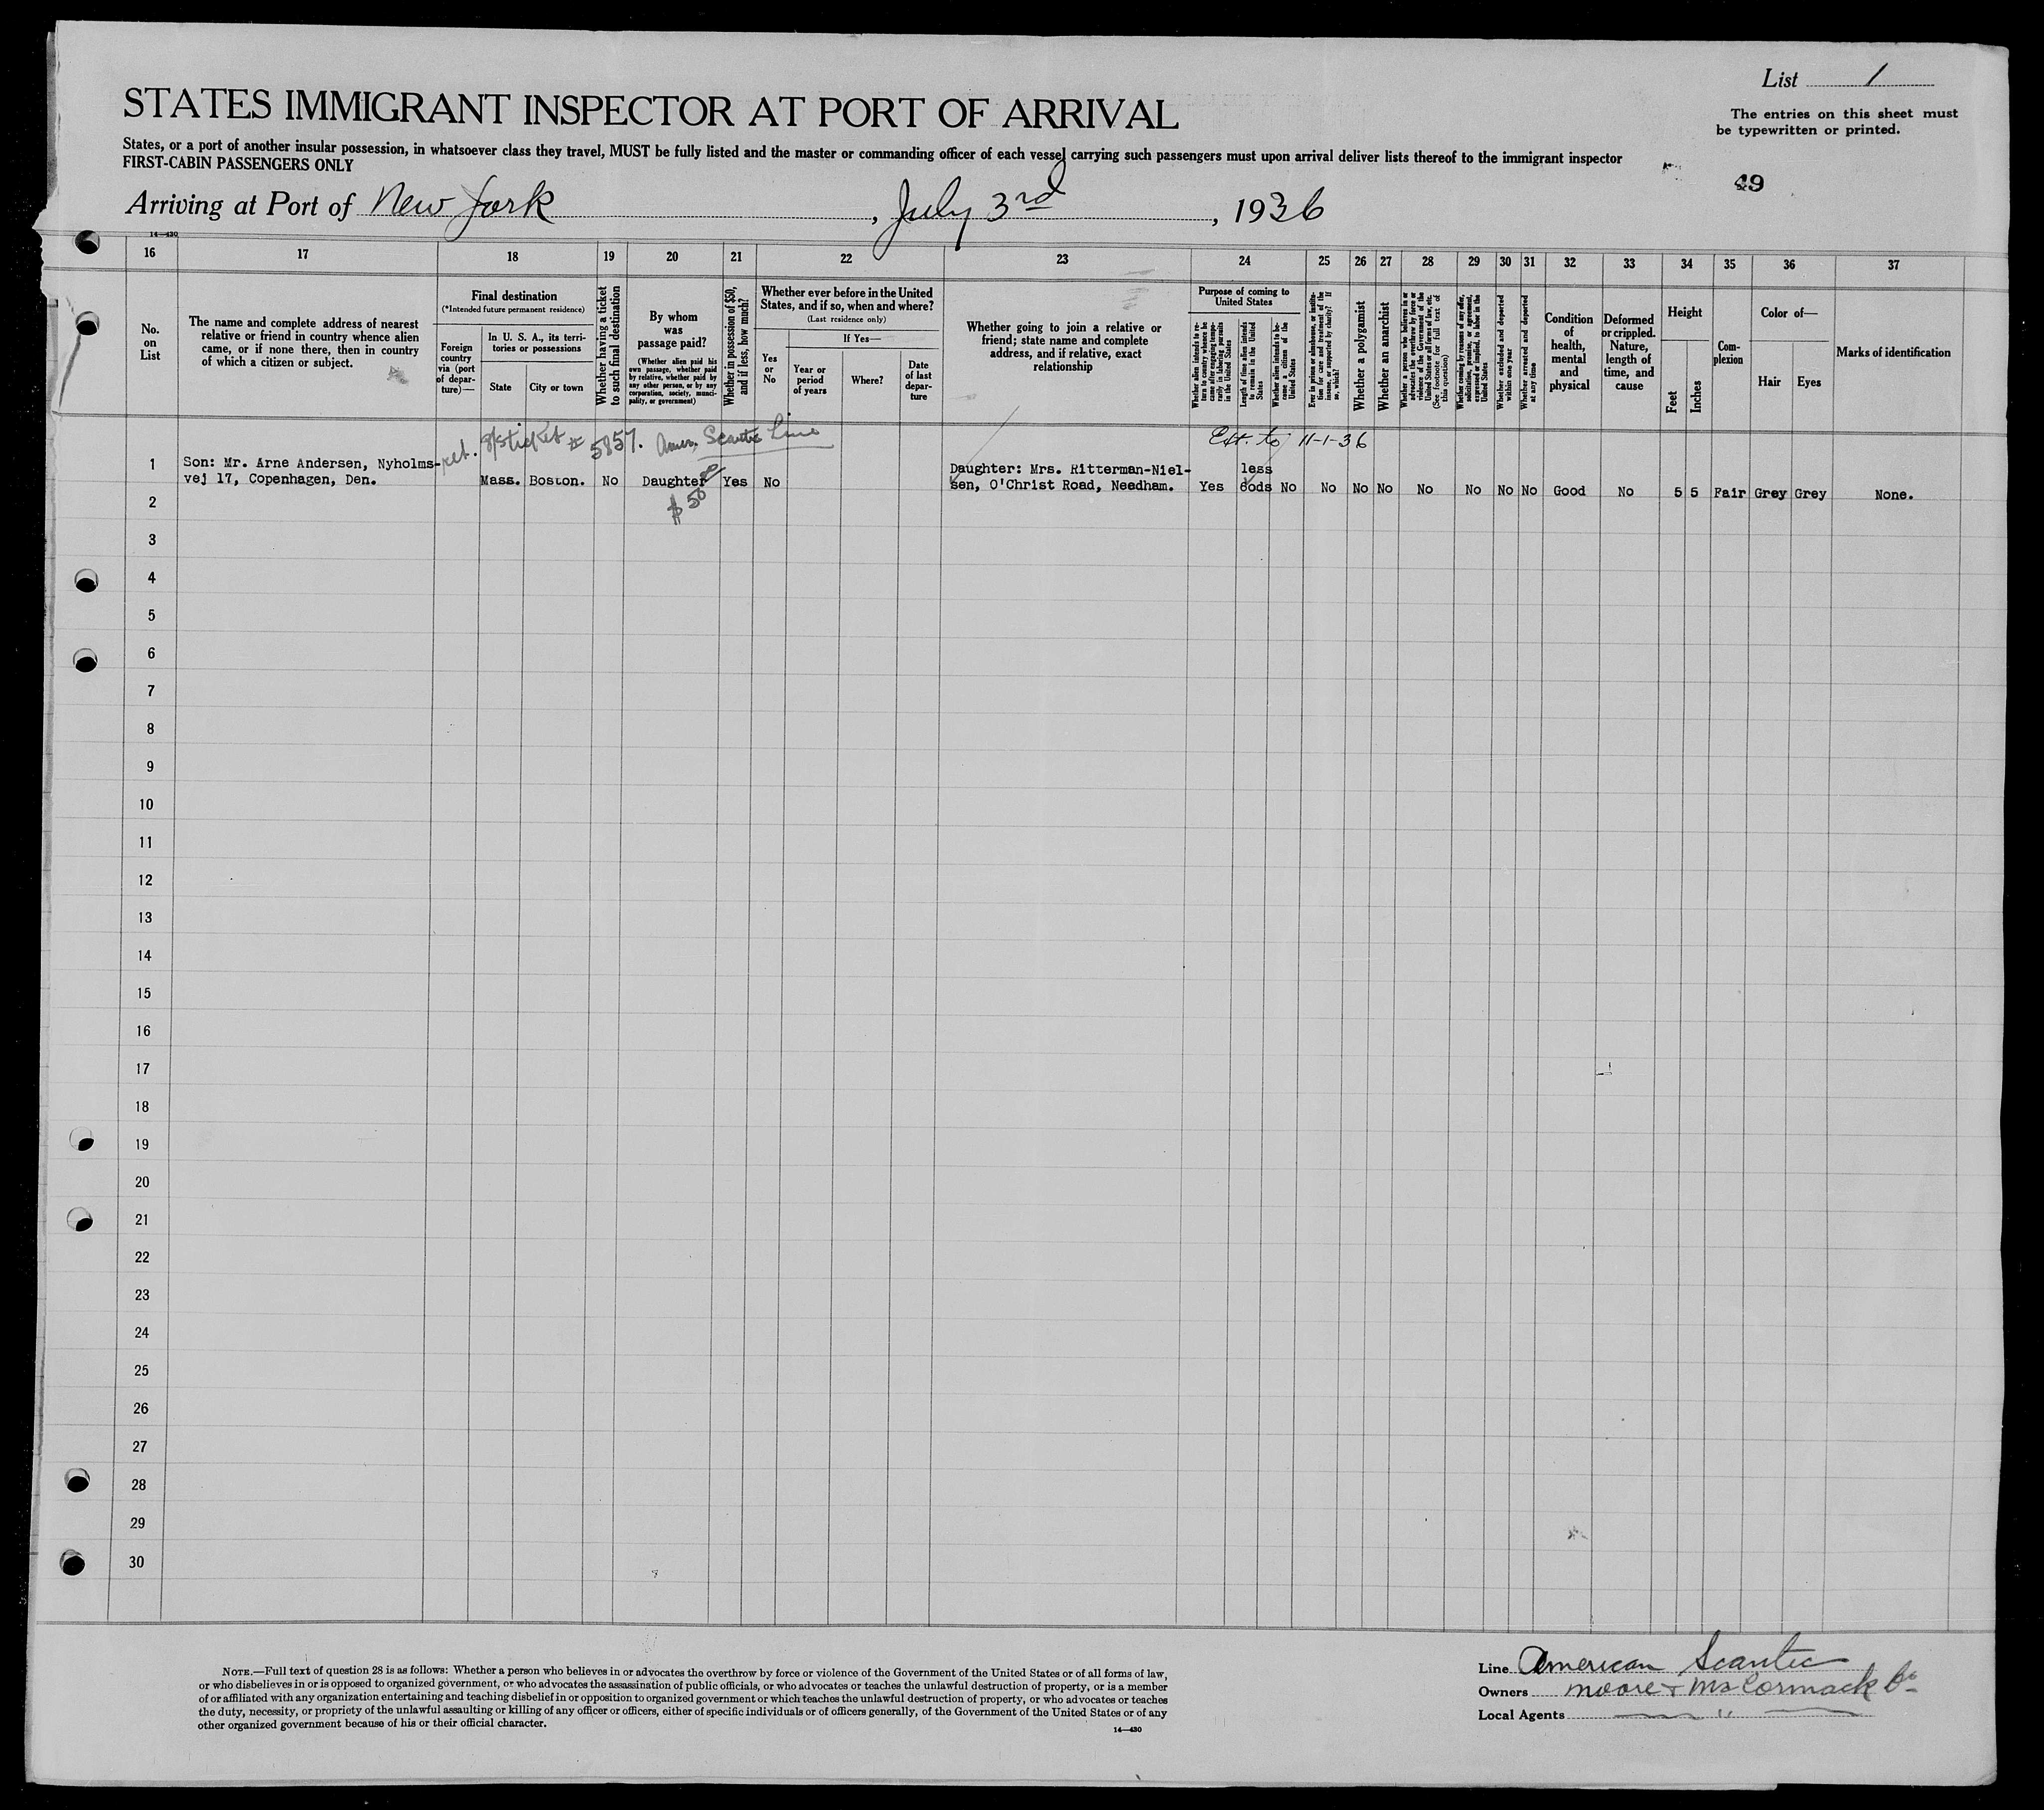 List 1
STATES IMMIGRANT INSPECTOR AT PORT OF ARRIVAL
The entries on this sheet must
be typewritten or printed.
States, or a port of another insular possession, in whatsoever class they travel, MUST be fully listed and the master or commanding officer of each vessel carrying such passengers must upon arrival deliver lists thereof to the immigrant inspector
FIRST-CABIN PASSENGERS ONLY
49
Arriving at Port of New York, July 3rd, 1936
14—430
16 17 18 19 20 21 22 23 24 25 26 27 28 29 30 31 32 33 34 35 36 37
No.
on
List
The name and complete address of nearest
relative or friend in country whence alien
came, or if none there, then in country
of which a citizen or subject.
Final destination
(*Intended future permanent residence)
Foreign
country
via (port
of depar-
ture)—
In U. S. A., its terri-
tories or possessions
State
City or town
Whether having a ticket
to such final destination
By whom
was
passage paid?
(Whether alien paid his
own passage, whether paid
by relative, whether paid by
any other person, or by any
corporation, society, munici-
pality, or government)
Whether in possession of $50,
and if less, how much?
Whether ever before in the United
States, and if so, when and where?
(Last residence only)
Yes
or
No
If Yes—
Year or
period
of years
Where?
Date
of last
depar-
ture
Whether going to join a relative or
friend; state name and complete
address, and if relative, exact
relationship
Purpose of coming to
United States
Whether alien intends to re-
turn to country whence he
came after engaging tempo-
rarily in laboring pursuits
in the United States
Length of time alien intends
to remain in the United
States
Whether alien intends to be-
come a citizen of the
United States
Ever in prison or almshouse, or institu-
tion for care and treatment of the
insane, or supported by charity? If
so, which?
Whether a polygamist
Whether an anarchist
Whether a person who believes in or
advocates the overthrow by force or
violence of the Government of the
United States or all forms of law, etc.
(See footnote for full text of
this question)
Whether coming by reasons of any offer,
solicitation, promise, or agreement,
expressed or implied, to labor in the
United States
Whether excluded and deported
within one year
Whether arrested and deported
at any time
Condition
of
health,
mental
and
physical
Deformed
or crippled.
Nature,
length of
time, and
cause
Height
Feet
Inches
Com-
plexion
Color of—
Hair
Eyes
Marks of identification
ret. S/S ticket # 5857. Amer. Scantic Line
Ext. to 11-1-36
1 Son: Mr. Arne Andersen, Nyholms- Daughter: Mrs. Ritterman-Niel- less
vej 17, Copenhagen, Den. Mass. Boston. No Daughter Yes No sen, O'Christ Road, Needham. Yes 60ds No No No No No No No No Good No 5 5 Fair Grey Grey None.
$50
2
3
4
5
6
7
8
9
10
11
12
13
14
15
16
17
18
19
20
21
22
23
24
25
26
27
28
29
30
NOTE.—Full text of question 28 is as follows: Whether a person who believes in or advocates the overthrow by force or violence of the Government of the United States or of all forms of law,
or who disbelieves in or is opposed to organized government, or who advocates the assassination of public officials, or who advocates or teaches the unlawful destruction of property, or is a member
of or affiliated with any organization entertaining and teaching disbelief in or opposition to organized government or which teaches the unlawful destruction of property, or who advocates or teaches
the duty, necessity, or propriety of the unlawful assaulting or killing of any officer or officers, either of specific individuals or of officers generally, of the Government of the United States or of any
other organized government because of his or their official character.
14—430
Line American Scantic
Owners Moore & McCormack Co
Local Agents — " —